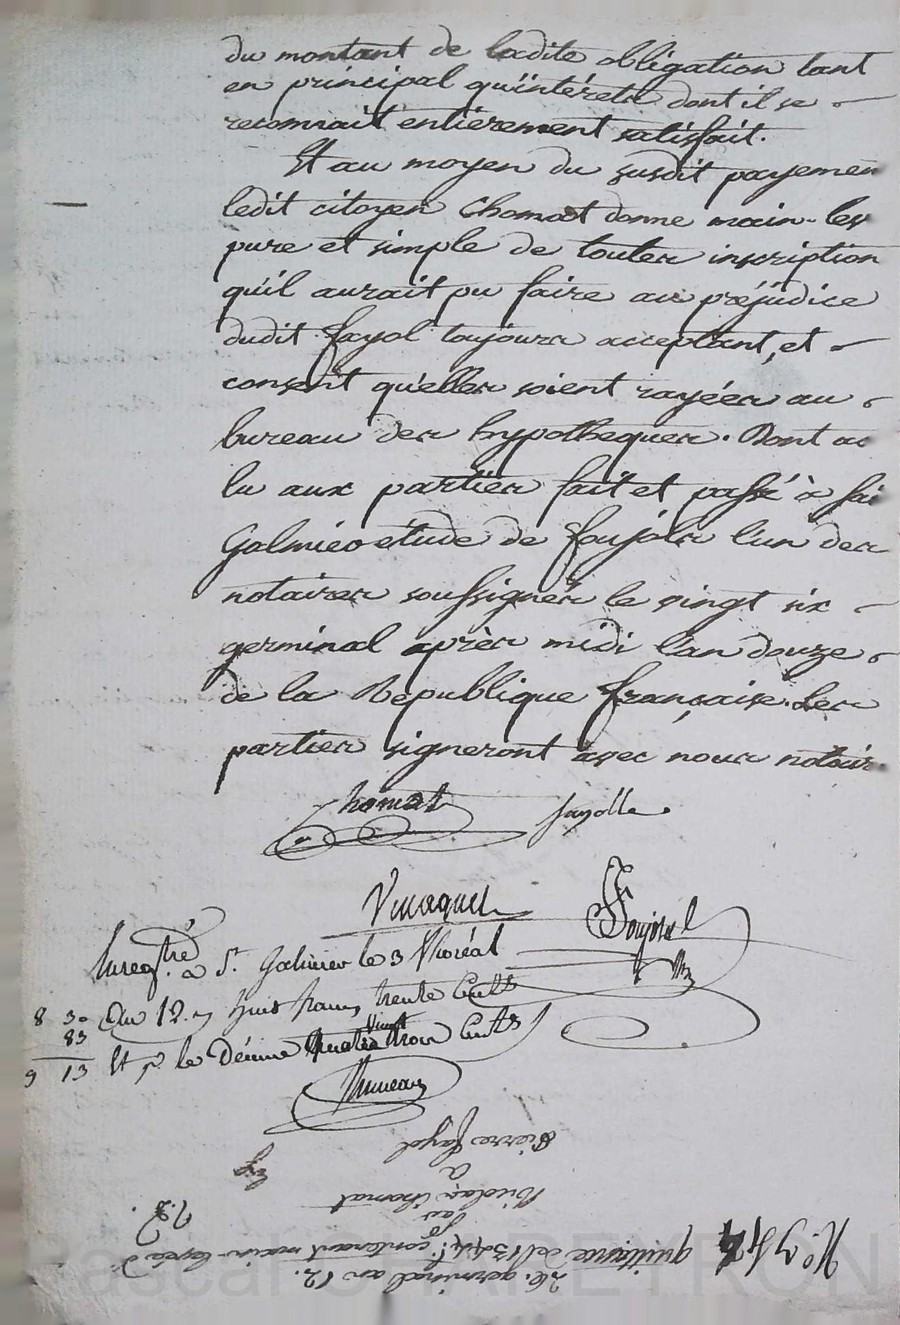 du montant de ladite obligation tant
en principal qu'intérets dont il se
reconnait entièrement satisfait.
Et au moyen du susdit payemen
ledit citoyen Chomat donne main-lev
pure et simple de toutes inscription
qu'il aurait pu faire au préjudice
dudit fayol toujours acceptant, et
consent qu'elles soient rayées au
bureau des hypotheques. Dont ac
lu aux parties fait et passé à sai
Galmier étude de foujols l'un des
notaires soussignés le vingt six
germinal après midi l'an douze
de la République française. Les
parties signeront avec nous notair
Chomat fayolle
Enregtré à St. Galmier le 3 floréal
8 30 An 12. huit francs trente Cents
83 Et p. le Décime quatre vingt trois Cents
9 13
Pierre fayol
à
Nicolas Chomat
par
quittance de 1344 contenant main levée
26. germinal an 12.